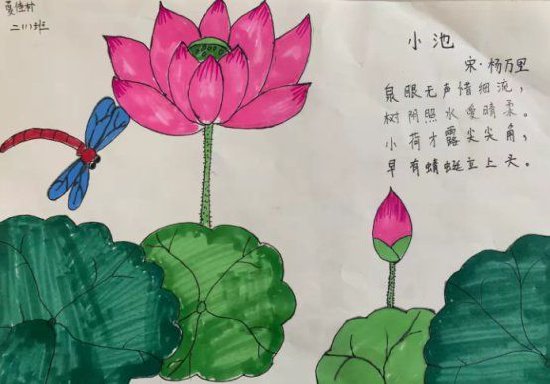 二(1)班
小池
宋·杨万里
泉眼无声惜细流，
树阴照水爱晴柔。
小荷才露尖尖角，
早有蜻蜓立上头。